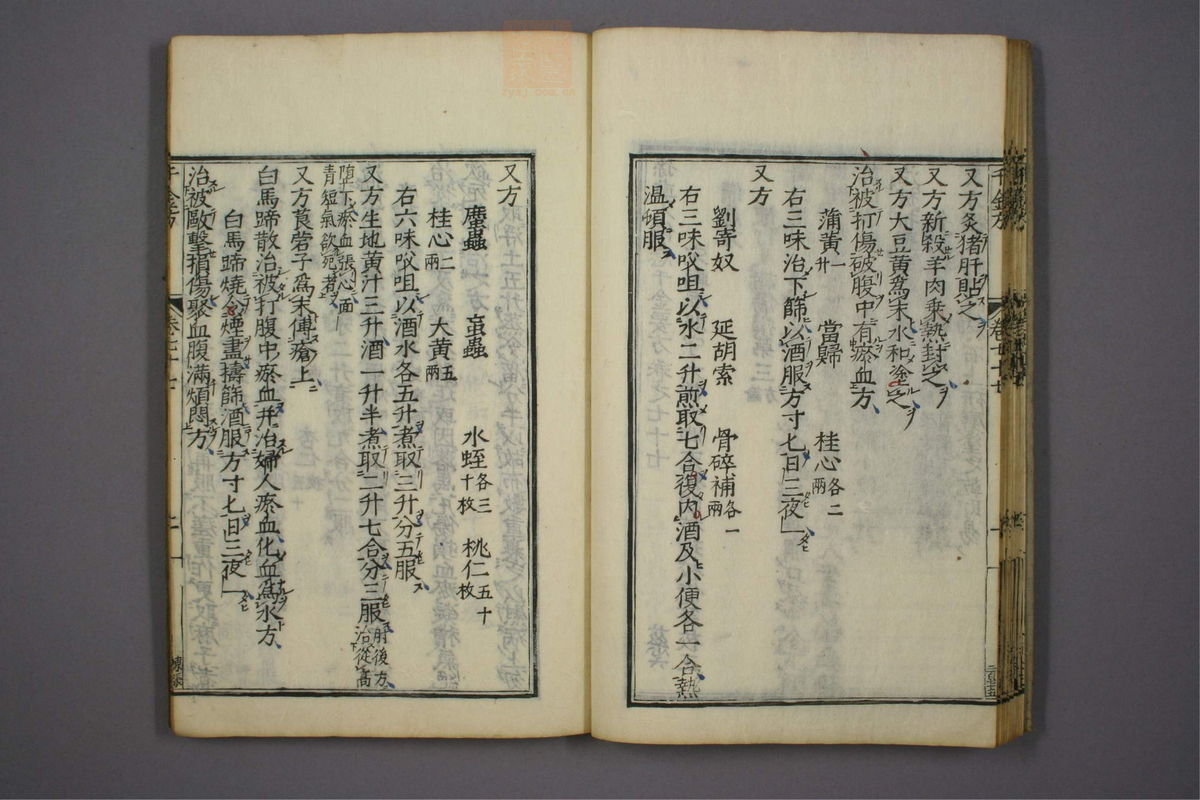 又方炙猪肝貼之
又方新殺羊肉乗熱封之
又方大豆黄爲末水和塗之
治被打傷破腹中有瘀血方
蒲黄一升 當歸 桂心各二兩
右三味治下篩以酒服方寸匕日三夜一
又方
劉寄奴 延胡索 骨碎補各一兩
右三味㕮咀以水二升煎取七合復内酒及小便各一合熱
温頓服
又方
䗪蟲 䖟蟲 水蛭各三十枚 桃仁五十枚
桂心二兩 大黄五兩
右六味㕮咀以酒水各五升煮取三升分五服
又方生地黄汁三升酒一升半煮取二升七合分三服肘後方治從高
堕下瘀血張心面青短氣欲死者
又方莨菪子爲末傅瘡上
白馬蹄散治被打腹中瘀血并治婦人瘀血化血爲水方
白馬蹄燒令煙盡擣篩酒服方寸匕日三夜一
治被毆擊損傷聚血腹滿煩悶方
千金方